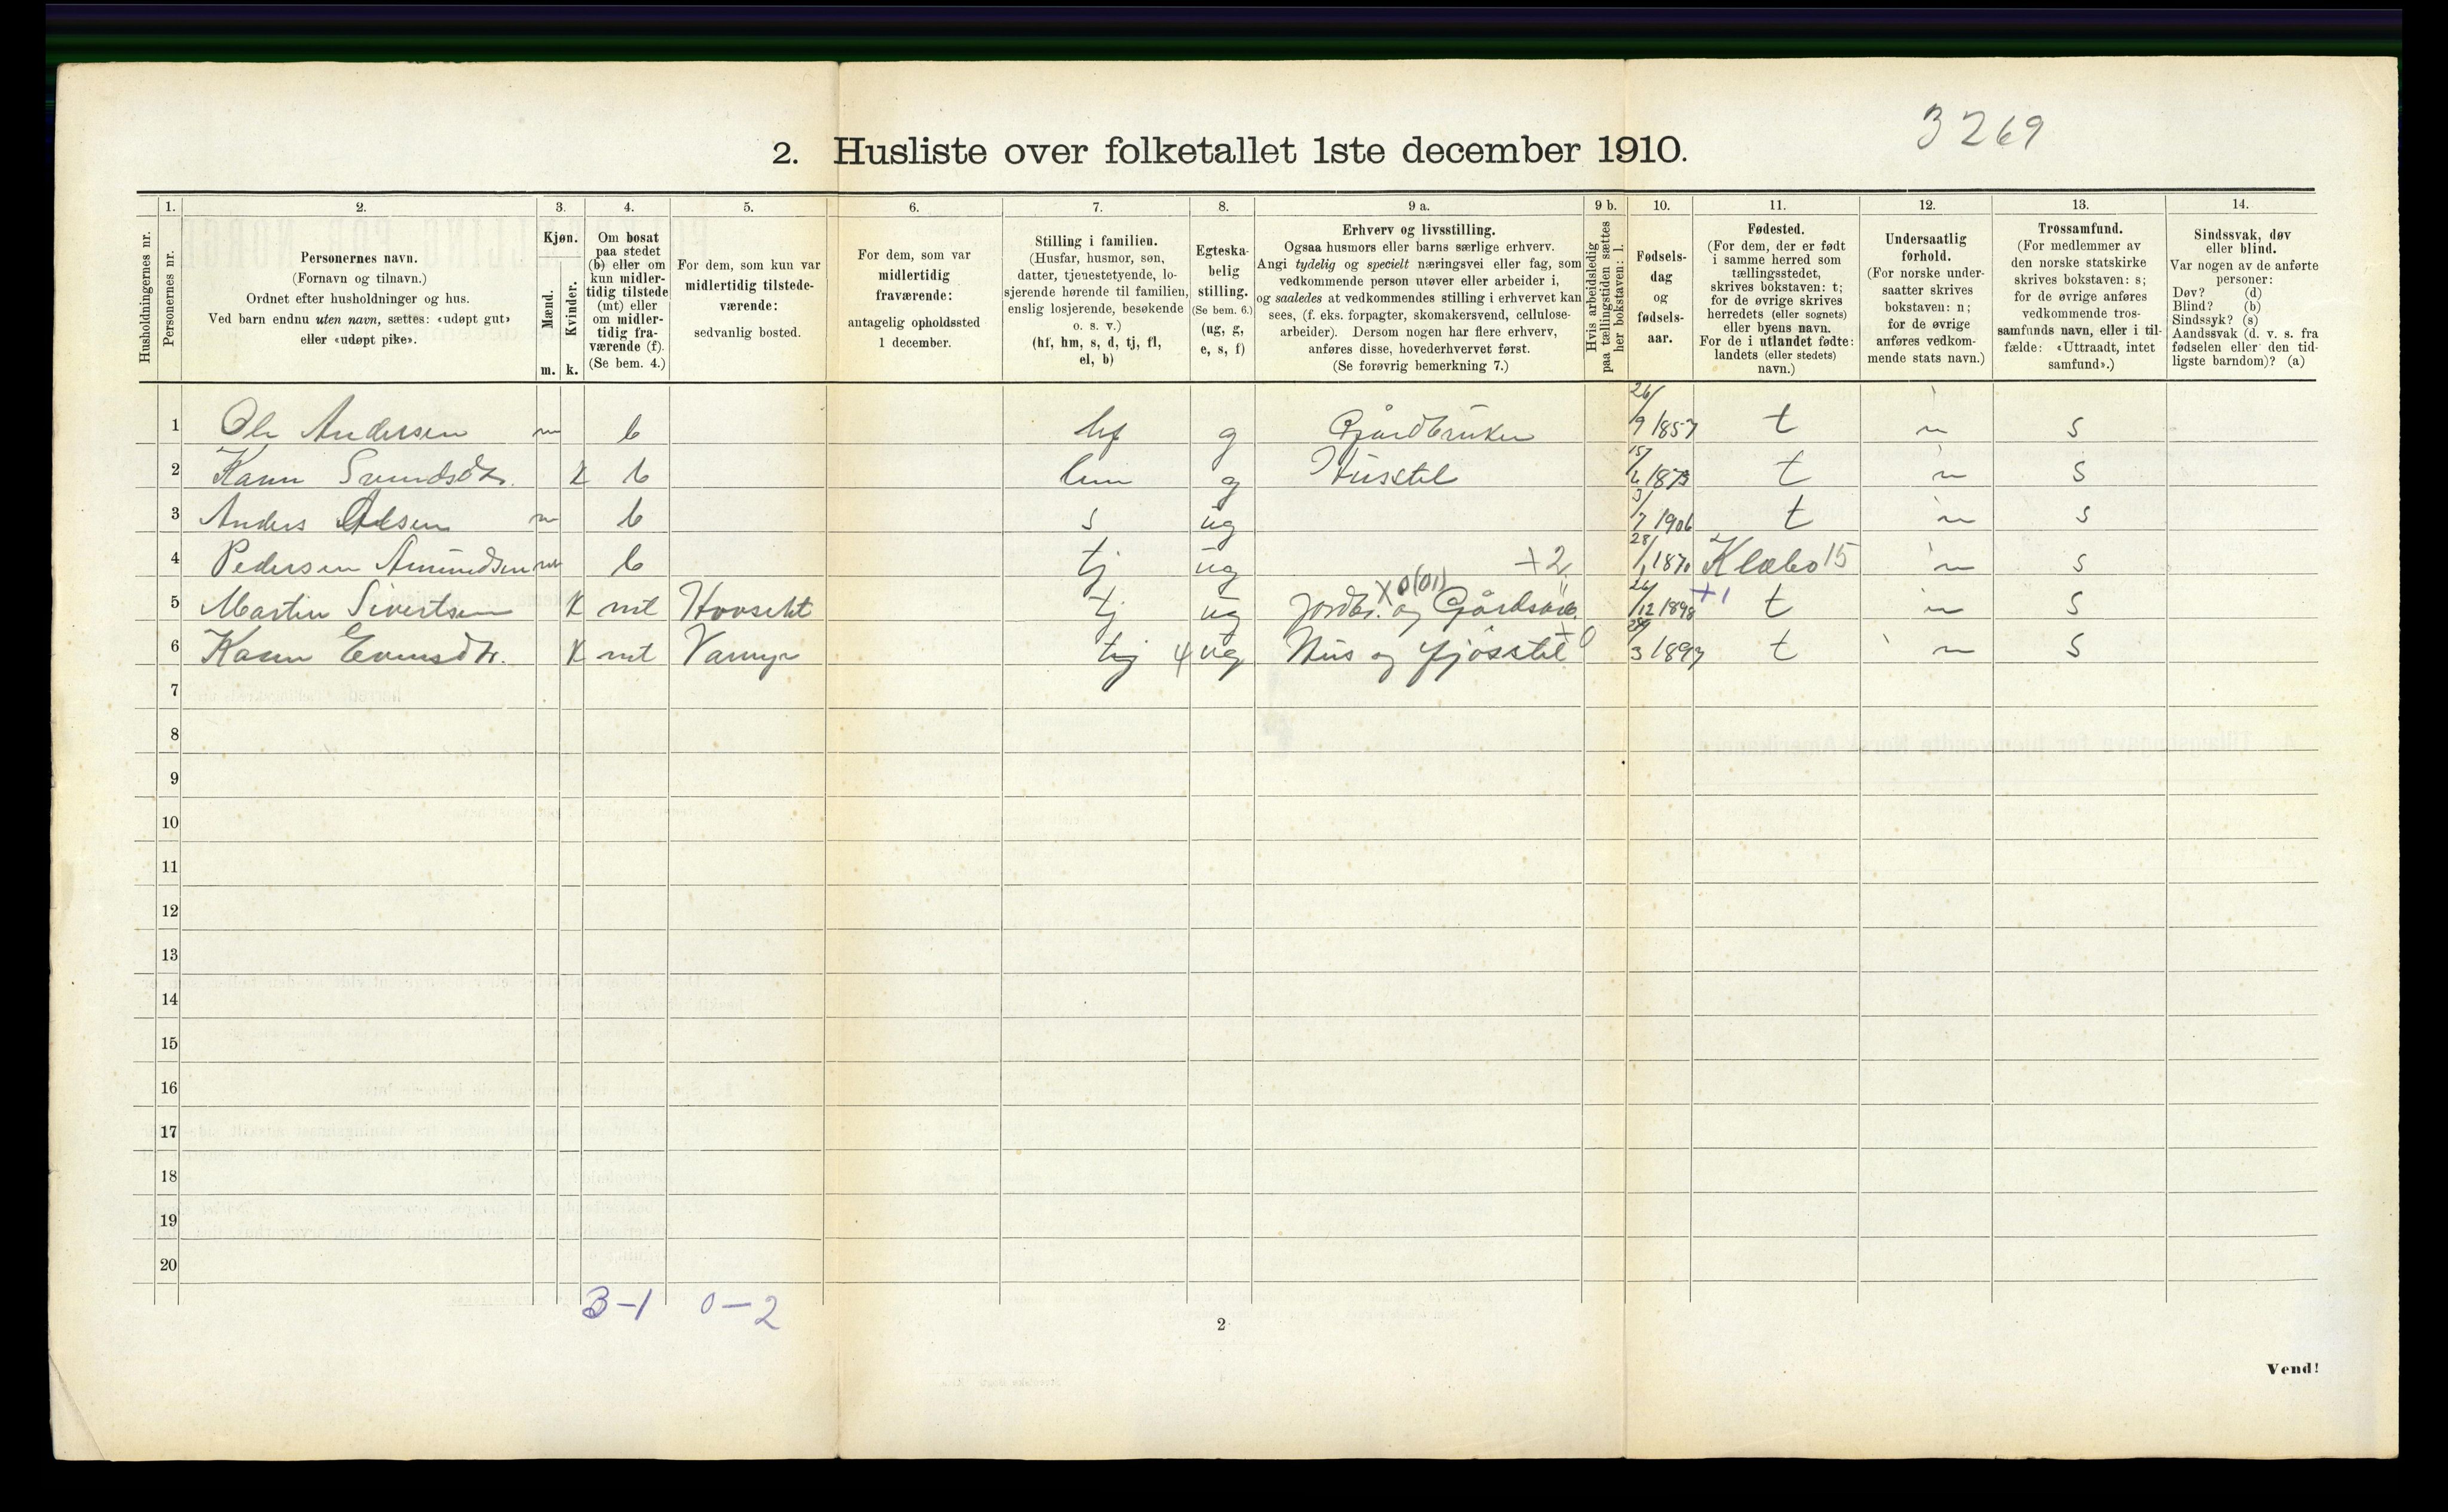 3269
2. Husliste over folketallet 1ste december 1910.
Husholdningernes nr.
1.
Personernes nr.
2.
Personernes navn.
(Fornavn og tilnavn.)
Ordnet efter husholdninger og hus.
Ved barn endnu uten navn, sættes: «udøpt gut»
eller «udøpt pike».
3.
Kjøn.
Mænd.
Kvinder.
m. k.
4.
Om bosat
paa stedet
(b) eller om
kun midler-
tidig tilstede
(mt) eller
om midler-
tidig fra-
værende (f).
(Se bem. 4.)
5.
For dem, som kun var
midlertidig tilstede-
værende:
sedvanlig bosted.
6.
For dem, som var
midlertidig
fraværende:
antagelig opholdssted
1 december.
7.
Stilling i familien.
(Husfar, husmor, søn,
datter, tjenestetyende, lo-
sjerende hørende til familien,
enslig losjerende, besøkende
o. s. v.)
(hf, hm, s, d, tj, fl,
el, b)
8.
Egteska-
belig
stilling.
(Se bem. 6.)
(ug, g,
e, s, f)
9 a.
Erhverv og livsstilling.
Ogsaa husmors eller barns særlige erhverv.
Angi tydelig og specielt næringsvei eller fag, som
vedkommende person utøver eller arbeider i,
og saaledes at vedkommendes stilling i erhvervet kan
sees, (f. eks. forpagter, skomakersvend, cellulose-
arbeider). Dersom nogen har flere erhverv,
anføres disse, hovederhvervet først.
(Se forøvrig bemerkning 7.)
9 b.
Hvis arbeidsledig
paa tællingstiden sættes
her bokstaven: l.
10.
Fødsels-
dag
og
fødsels-
aar.
11.
Fødested.
(For dem, der er født
i samme herred som
tællingsstedet,
skrives bokstaven: t;
for de øvrige skrives
herredets (eller sognets)
eller byens navn.
For de i utlandet fødte:
landets (eller stedets)
navn.)
12.
Undersaatlig
forhold.
(For norske under-
saatter skrives
bokstaven: n;
for de øvrige
anføres vedkom-
mende stats navn.)
13.
Trossamfund.
(For medlemmer av
den norske statskirke
skrives bokstaven: s;
for de øvrige anføres
vedkommende tros-
samfunds navn, eller i til-
fælde: «Uttraadt, intet
samfund».)
14.
Sindssvak, døv
eller blind.
Var nogen av de anførte
personer:
Døv? (d)
Blind? (b)
Sindssyk? (s)
Aandssvak (d. v. s. fra
fødselen eller den tid-
ligste barndom)? (a)
1 Ole Andersen m b hf g Gårdbruker 26/9 1857 t n s
2 Karen k b hm g Husstel 1873 t n s
3 Anders Olsen m b s ug 3/7 1906 t n s
4 Pedersen Amundsen m b tj ug +2 28/1 1870 Klæbo 15 n s
5 Martin Sivertsen k mt tj ug Jordbr. og x 0(01) 26/12 1898 +1 t n s
6 Karen k mt tj ug Hus og fjøsstel 3 1897 t n s
7
8
9
10
11
12
13
14
15
16
17
18
19
20
3-1 0-2
2
Vend!